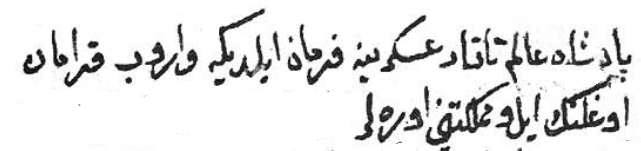 پادشاه عالم تاتار عسكرینه فرمان ایلدیكه واروب قرامان
اوغلنك ایل و مملكتنی اوره لر